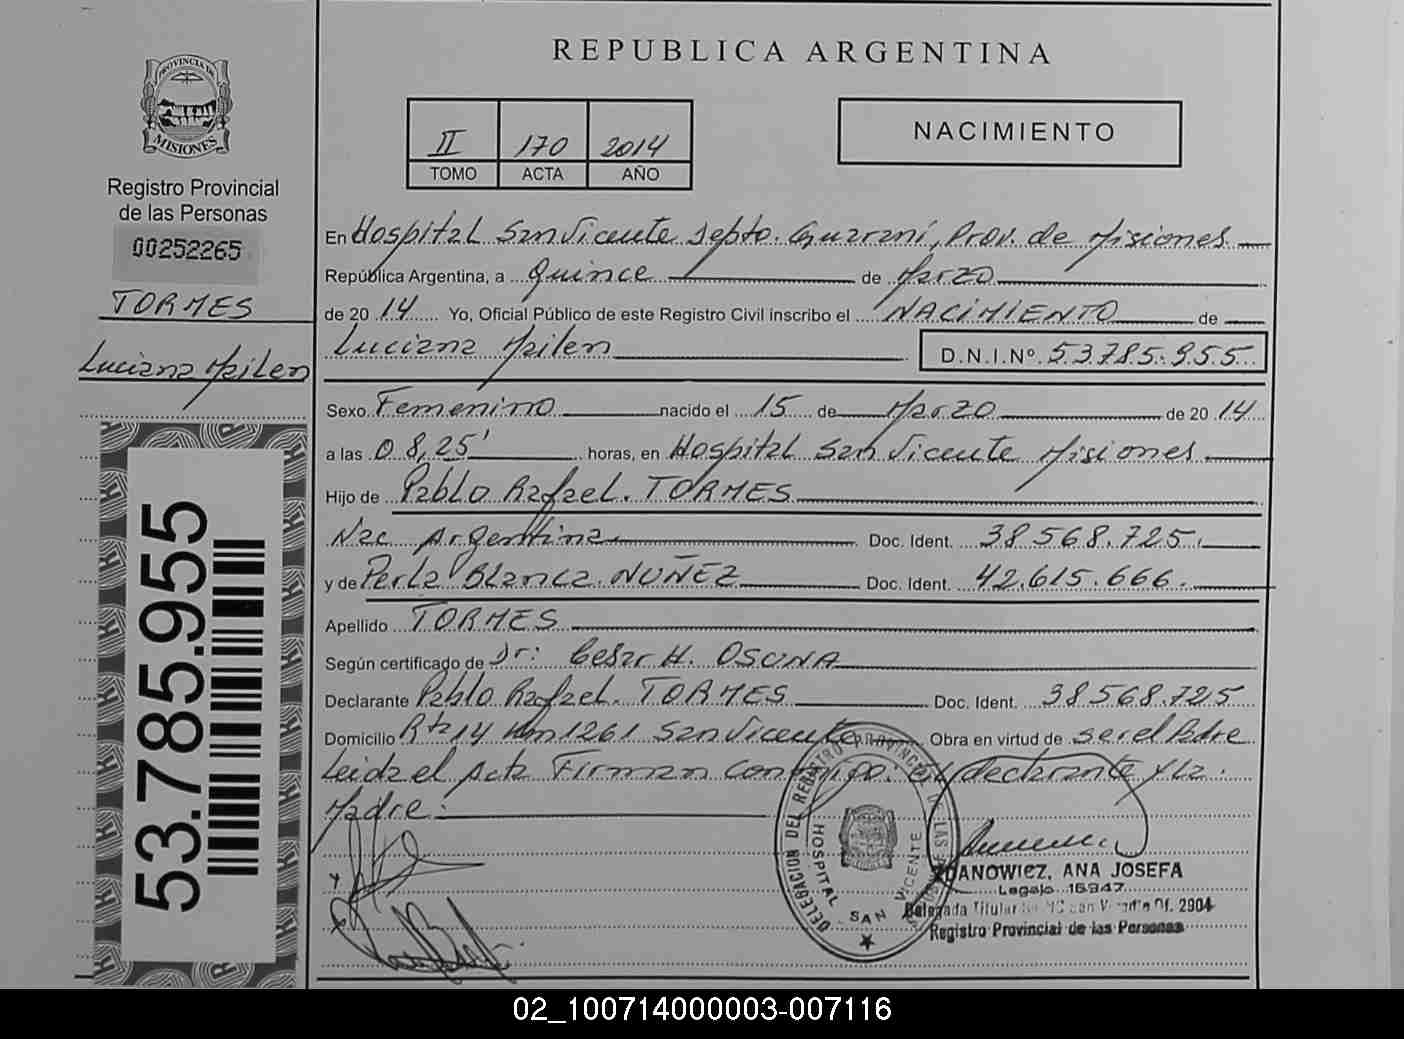 REPUBLICA ARGENTINA
PROVINCIA DE
MISIONES
Registro Provincial
de las Personas
00252265
TORMES
Luciana Mailen
53.785.955
II 170 2014
TOMO ACTA AÑO
NACIMIENTO
En Hospital San Vicente Depto. Guaraní, Prov. de Misiones
República Argentina, a Quince de Marzo
de 2014 Yo, Oficial Público de este Registro Civil inscribo el NACIMIENTO de
Luciana Mailen D.N.I.Nº. 53.785.955
Sexo Femenino nacido el 15 de Marzo de 2014
a las 08,25' horas, en Hospital San Vicente Misiones
Hijo de Pablo Rafael. TORMES
Nac Argentina Doc. Ident. 38568.725.
y de Perla Blanca NUÑEZ Doc. Ident. 42.615.666.
Apellido TORMES
Según certificado de Dr: Cesar H. OSUNA
Declarante Pablo Rafael. TORMES Doc. Ident. 38568.725
Domicilio Rta 14 Km 1261 San Vicente Obra en virtud de ser el Padre
Leida el Acta Firman Conmigo. El declarante y La
Madre:
DELEGACION DEL REGISTRO PROVINCIAL DE LAS PERSONAS
HOSPITAL SAN VICENTE
ZDANOWICZ, ANA JOSEFA
Legajo 16947
Delegada Titular San Vicente Of. 2904
Registro Provincial de las Personas
02_100714000003-007116